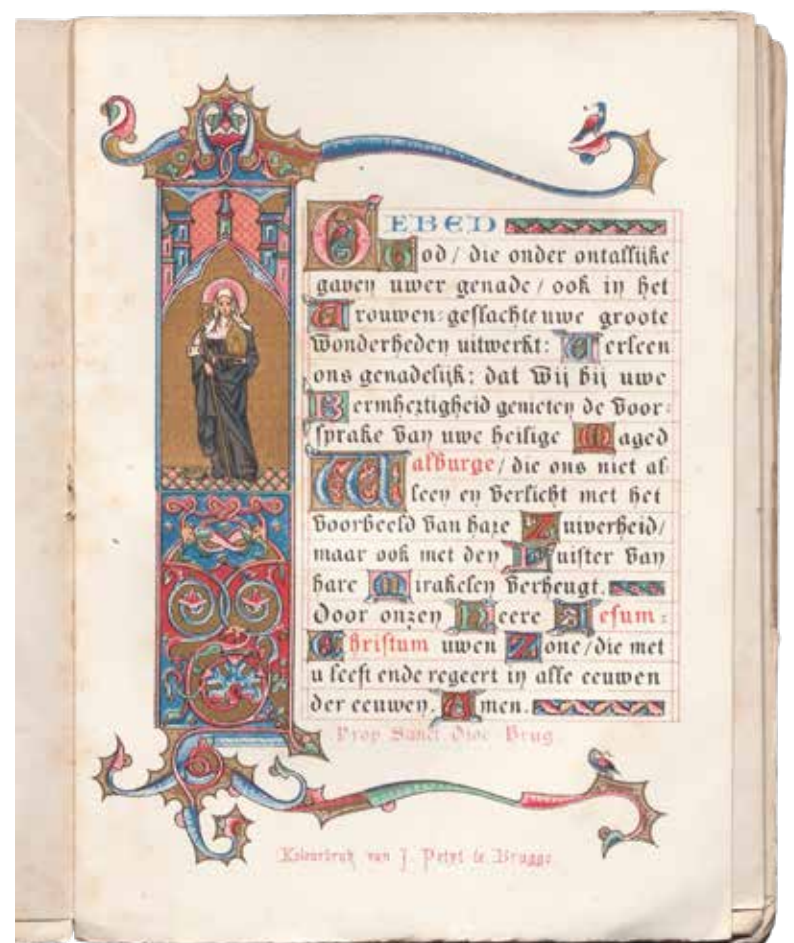 GEBED
God / die onder ontallijke
gaven uwer genade / ook in het
Vrouwen-geslachte uwe groote
wonderheden uitwerkt: Verleen
ons genadelijk: dat wij bij uwe
Bermhertigheid genieten de voor-
sprake van uwe heilige Maged
Walburge / die ons niet al
leen en verlicht met het
voorbeeld van hare Zuiverheid /
maar ook met den Luister van
hare Mirakelen verheugt.
Door onzen Heere Jesum-
Christum uwen Zone / die met
u leeft ende regeert in alle eeuwen
der eeuwen. Amen.
Prop. Sanct. Dioc. Brug.
Kleurdruk van J. Petyt te Brugge